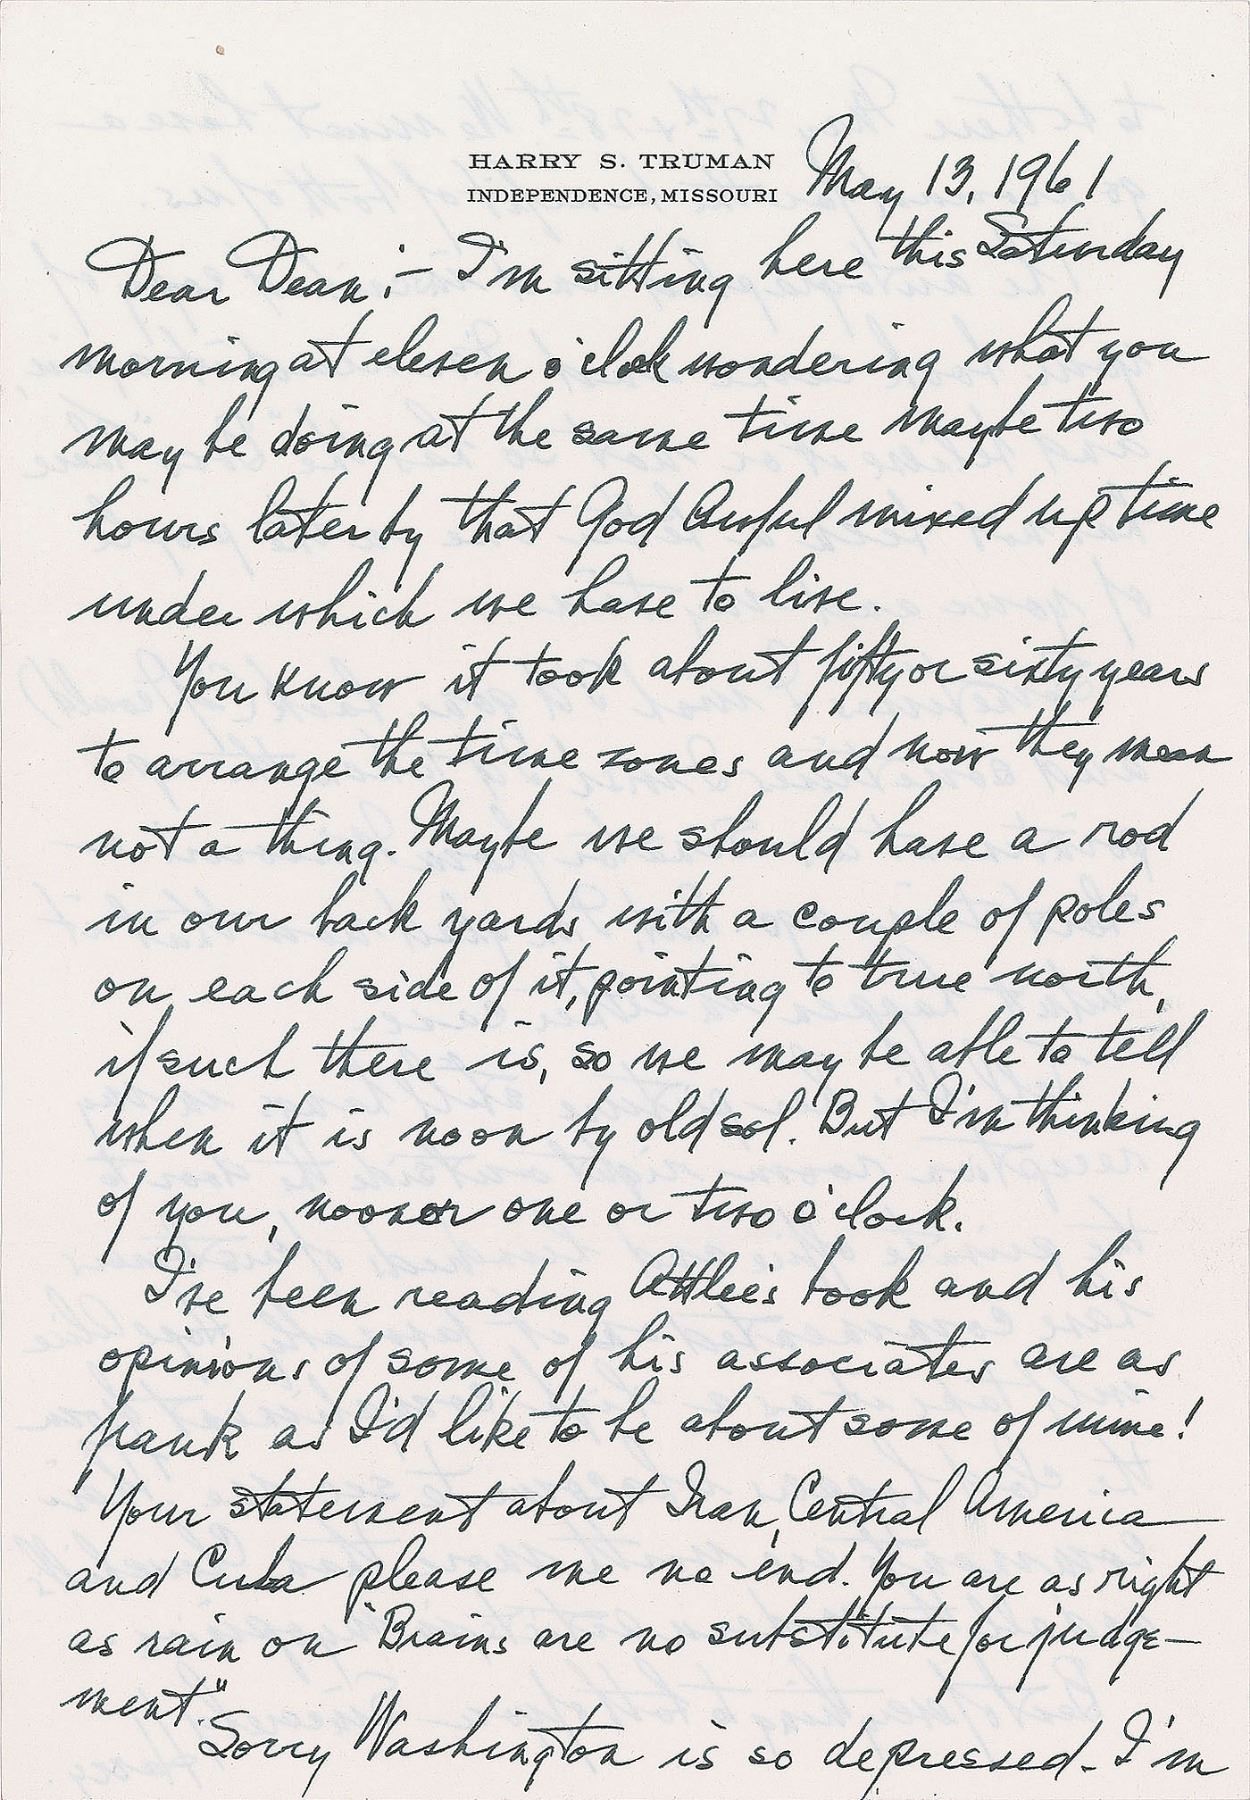 HARRY S. TRUMAN
INDEPENDENCE, MISSOURI
May 13, 1961
Dear Dean:- I'm sitting here this Saturday
morning at eleven o'clok wondering what you
may be doing at the same time maybe two
hours later by that God Awful mixed up time
under which we have to live.
You know it took about fifty or sixty years
to arrange the time zones and now they mean
not a thing. Maybe we should have a rod
in our back yards with a couple of poles
on each side of it, pointing to true north,
if such there is, so we may be able to tell
when it is noon by old sol. But I'm thinking
of you, noon or one or two o'clock.
I've been reading Attlee's book and his
opinions of some of his associates are as
frank as I'd like to be about some of mine!
Your statement about Iran, Central America
and Cuba please me no end. You are as right
as rain on "Brains are no substitute for judge-
ment".
Sorry Washington is so depressed. I'm